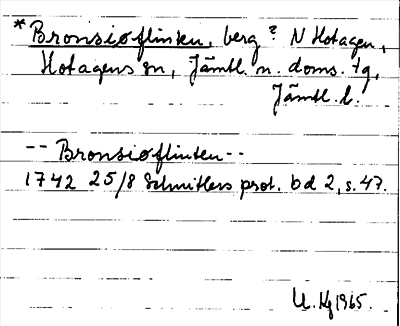 *Bronsiøflinten, berg? N Hotagen,
Hotagens sn, Jämtl. n. doms. tg,
Jämtl. l.
-- Bronsiøflinten --
1742 25/8 Schnitlers prot. bd 2, s. 47.
1965.